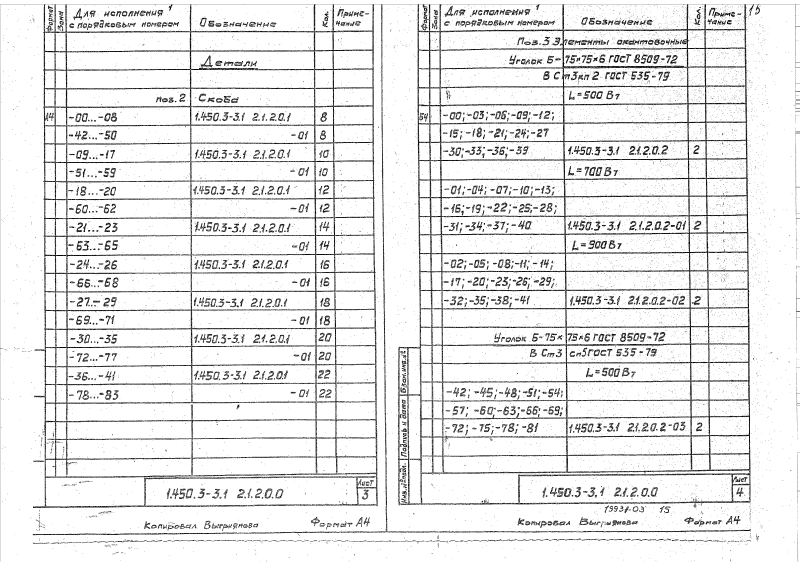 Формат
Зона
Для исполнения 1
с порядковым номером
Обозначение
Кол.
Приме-
чание
Детали
поз.2 Скоба
А4 -00...-08 1.450.3-3.1 2.1.2.0.1 8
-42...-50 -01 8
-09...-17 1.450.3-3.1 2.1.2.0.1 10
-51...-59 -01 10
-18...-20 1.450.3-3.1 2.1.2.0.1 12
-60...-62 -01 12
-21...-23 1.450.3-3.1 2.1.2.0.1 14
-63...-65 -01 14
-24...-26 1.450.3-3.1 2.1.2.0.1 16
-66...-68 -01 16
-27...-29 1.450.3-3.1 2.1.2.0.1 18
-69...-71 -01 18
-30...-35 1.450.3-3.1 2.1.2.0.1 20
-72...-77 -01 20
-36...-41 1.450.3-3.1 2.1.2.0.1 22
-78...-83 -01 22
1.450.3-3.1 2.1.2.0.0
Лист
3
Копировал Выгриянова Формат А4
15
Формат
Зона
Для исполнения 1
с порядковым номером
Обозначение
Кол.
Приме-
чание
Поз.3 Элементы окантовочные
Уголок Б-75×75×6 ГОСТ 8509-72
В Ст3кп2 ГОСТ 535-79
L=500 Вт
Б4 -00;-03;-06;-09;-12;
-15;-18;-21;-24;-27
-30;-33;-36;-39 1.450.3-3.1 2.1.2.0.2 2
L=700 Вт
-01;-04;-07;-10;-13;
-16;-19;-22;-25;-28;
-31;-34;-37;-40 1.450.3-3.1 2.1.2.0.2-01 2
L=900 Вт
-02;-05;-08;-11;-14;
-17;-20;-23;-26;-29;
-32;-35;-38;-41 1.450.3-3.1 2.1.2.0.2-02 2
Уголок Б-75×75×6 ГОСТ 8509-72
В Ст3 сп5 ГОСТ 535-79
L=500 Вт
-42;-45;-48;-51;-54;
-57;-60;-63;-66;-69;
-72;-75;-78;-81 1.450.3-3.1 2.1.2.0.2-03 2
Инв.№подл. Подпись и дата Взам.инв.№
1.450.3-3.1 2.1.2.0.0
Лист
4
19931-03 15
Копировал Выгриянова Формат А4